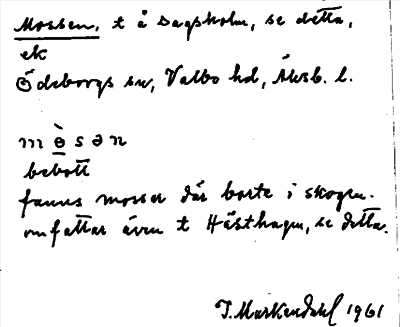 Mossen, t å Dagsholm, se detta,
ek
Ödeborgs sn, Valbo hd, Älvsb. l.
m ò s ə n
bebott
fanns mossar där borta i skogen.
omfattar även t Hästhagen, se detta.
J. Markendahl 1961